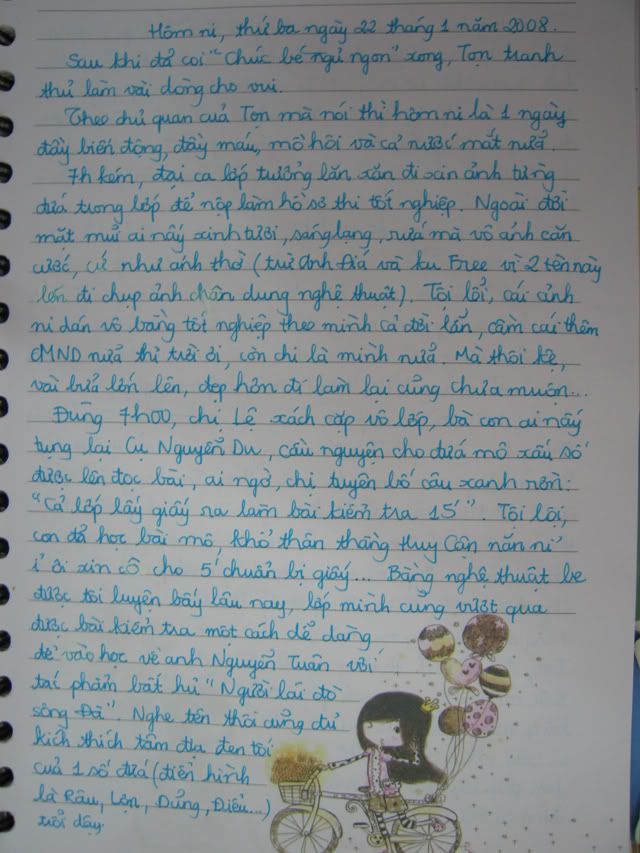 Hôm ni, thứ ba ngày 22 tháng 1 năm 2008.
Sau khi đã coi "Chúc bé ngủ ngon" xong, Tọn tranh
thủ làm vài dòng cho vui.
Theo chủ quan của Tọn mà nói thì hôm ni là 1 ngày
đầy biến động, đầy máu, mồ hôi và cả nước mắt nữa.
7h kém, đại ca lớp tưởng lăn xăn đi xin ảnh từng
đứa trong lớp để nộp làm hồ sơ thi tốt nghiệp. Ngoài đời
mắt mũi ai nấy xinh tươi, sáng lạng, rứa mà vô ảnh căn
cước, cứ như ảnh thờ (trừ Anh Đá và ku Free vì 2 tên này
lén đi chụp ảnh chân dung nghệ thuật). Tội lỗi, cái ảnh
ni dán vô bằng tốt nghiệp theo mình cả đời lận, cầm cái thêm
CMND nữa thì trời ơi, còn chi là mình nữa. Mà thôi kệ,
vài bữa lớn lên, đẹp hơn đi làm lại cũng chưa muộn...
Đúng 7h00, chị Lệ xách cặp vô lớp, bà con ai nấy
tụng lại Cụ Nguyễn Du, cầu nguyện cho đứa mô xấu số
được lên đọc bài, ai ngờ, chị tuyên bố câu xanh rờn:
"Cả lớp lấy giấy ra làm bài kiểm tra 15'". Tội lội,
con đã học bài mô, khổ thân thằng Huy Cận năn nỉ
ỉ ôi xin cô cho 5' chuẩn bị giấy... Bằng nghệ thuật be
được tôi luyện bấy lâu nay, lớp mình cung vượt qua
được bài kiểm tra một cách dể dàng
để vào học về anh Nguyễn Tuân với
tác phẩm bất hủ "Người lái đò
sông Đà". Nghe tên thôi cũng đủ
kích thích tâm địa đen tối
của 1 số đứa (điển hình
là Râu, Lọn, Dũng, Điểu...)
trỗi dậy.